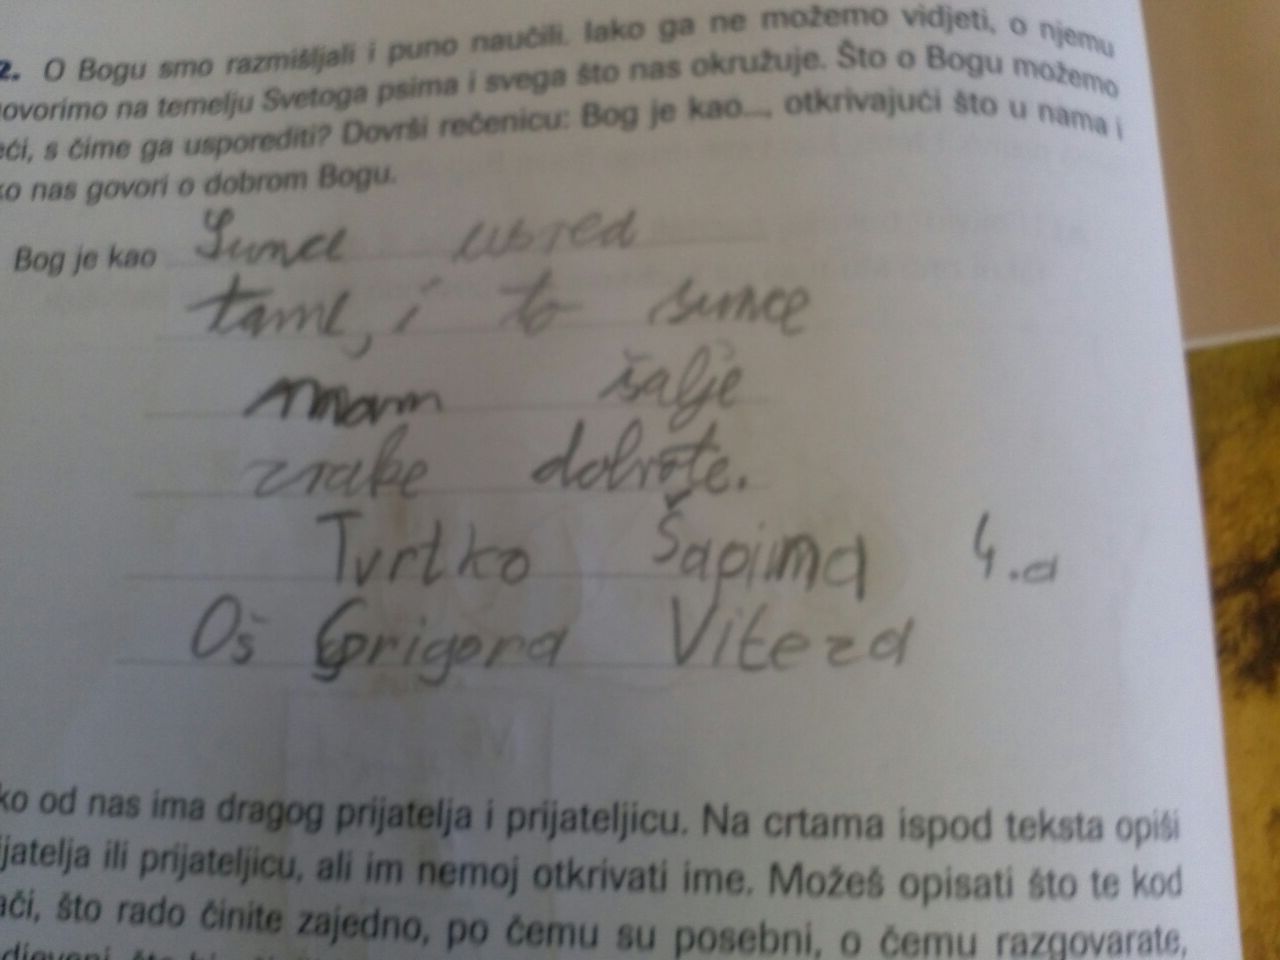 2. O Bogu smo razmišljali i puno naučili. Iako ga ne možemo vidjeti, o njemu
ovorimo na temelju Svetoga psima i svega što nas okružuje. Što o Bogu možemo
eći, s čime ga usporediti? Dovrši rečenicu: Bog je kao..., otkrivajući što u nama i
ko nas govori o dobrom Bogu.
Bog je kao Sunce usred
tame, i to sunce
nam šalje
zrake dobrote.
Tvrtko Šapina 4.a
Oš Grigora Viteza
ko od nas ima dragog prijatelja i prijateljicu. Na crtama ispod teksta opiši
ijatelja ili prijateljicu, ali im nemoj otkrivati ime. Možeš opisati što te kod
ači, što rado činite zajedno, po čemu su posebni, o čemu razgovarate,